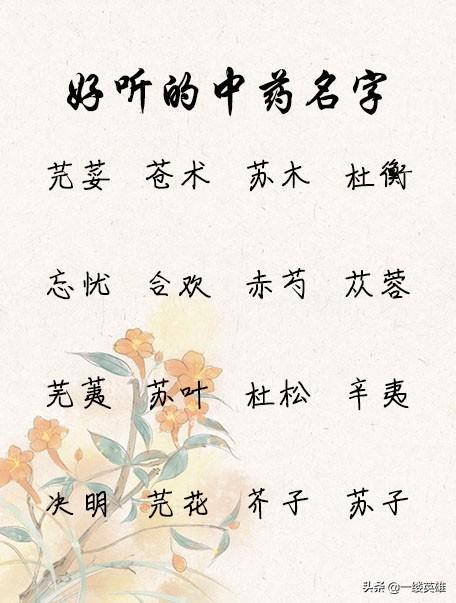 好听的中药名字
芫荽 苍术 苏木 杜衡
忘忧 合欢 赤芍 苁蓉
芜荑 苏叶 杜松 辛夷
决明 芫花 芥子 苏子
头条 @一缕英雄